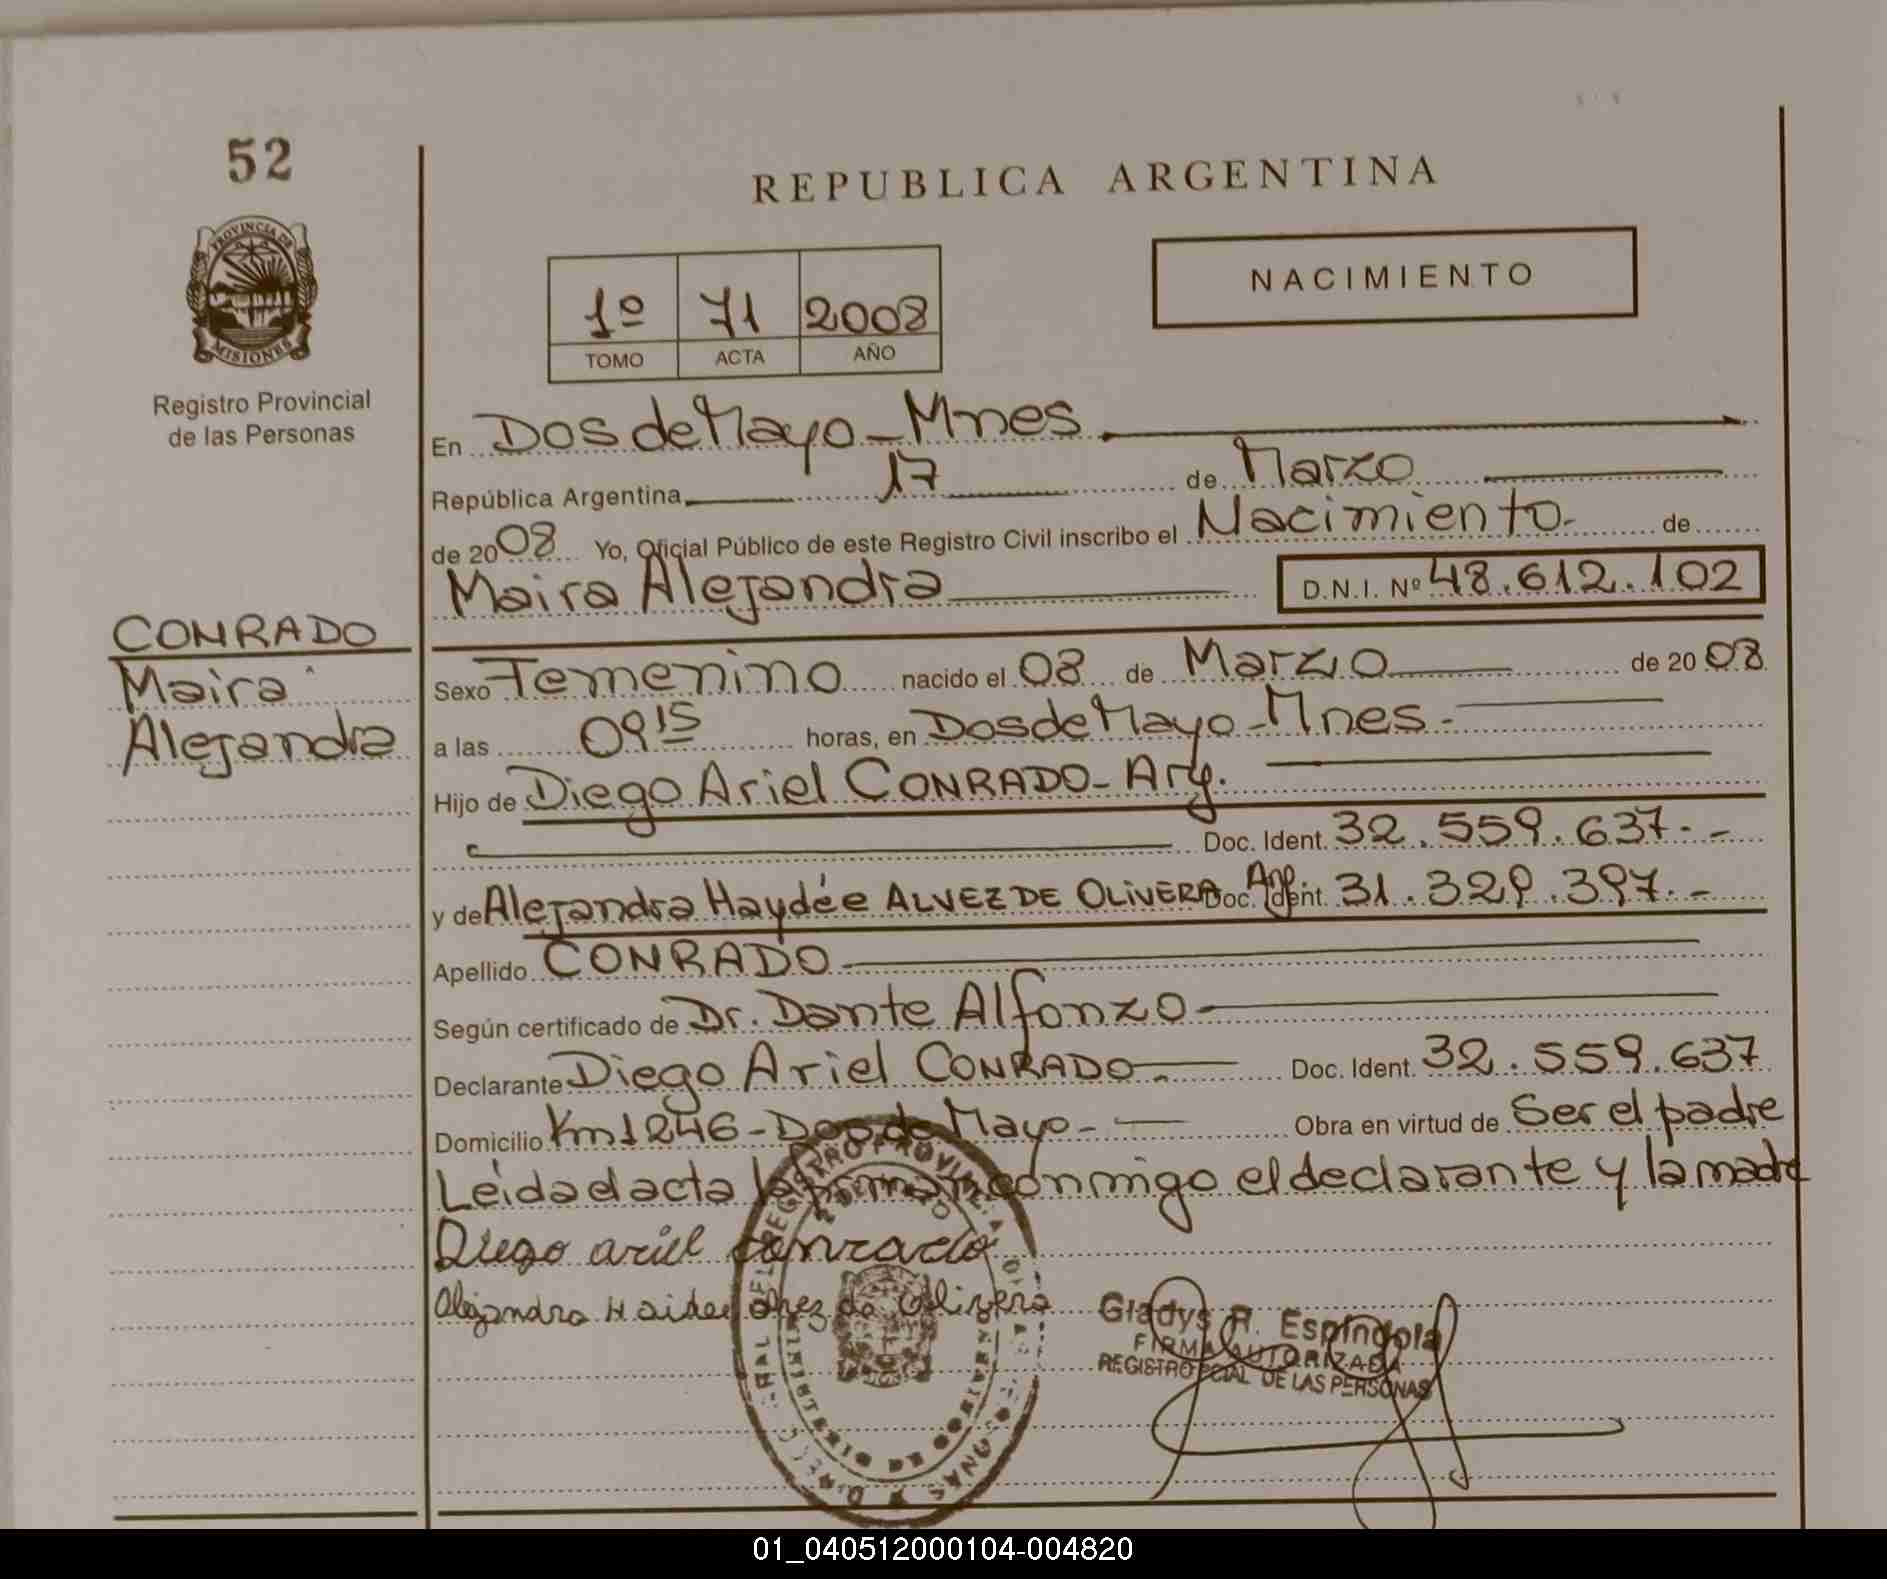 52
REPUBLICA ARGENTINA
PROVINCIA DE
MISIONES
Registro Provincial
de las Personas
1º 71 2008
TOMO ACTA AÑO
NACIMIENTO
En Dos de Mayo - Mnes
República Argentina 17 de Marzo
de 2008 Yo, Oficial Público de este Registro Civil inscribo el Nacimiento. de
Maira Alejandra D.N.I. Nº 48.612.102
CONRADO
Maira
Alejandra
Sexo Femenino nacido el 08 de Marzo de 2008
a las 09 15 horas, en Dos de Mayo - Mnes.
Hijo de Diego Ariel CONRADO - Arg.
Doc. Ident. 32.559.637.-
y de Alejandra Haydée ALVEZ DE OLIVERA Arg. Doc. Ident. 31.329.397.-
Apellido CONRADO
Según certificado de Dr. Dante Alfonzo
Declarante Diego Ariel CONRADO.- Doc. Ident. 32.559.637
Domicilio Km 1246 - Dos de Mayo - Obra en virtud de Ser el padre
Leída el acta la firman conmigo el declarante y la madre
Diego ariel conrado
Alejandra Haidee de Olivera
Gladys R. Espindola
FIRMA AUTORIZADA
REGISTRO PCIAL DE LAS PERSONAS
01_040512000104-004820